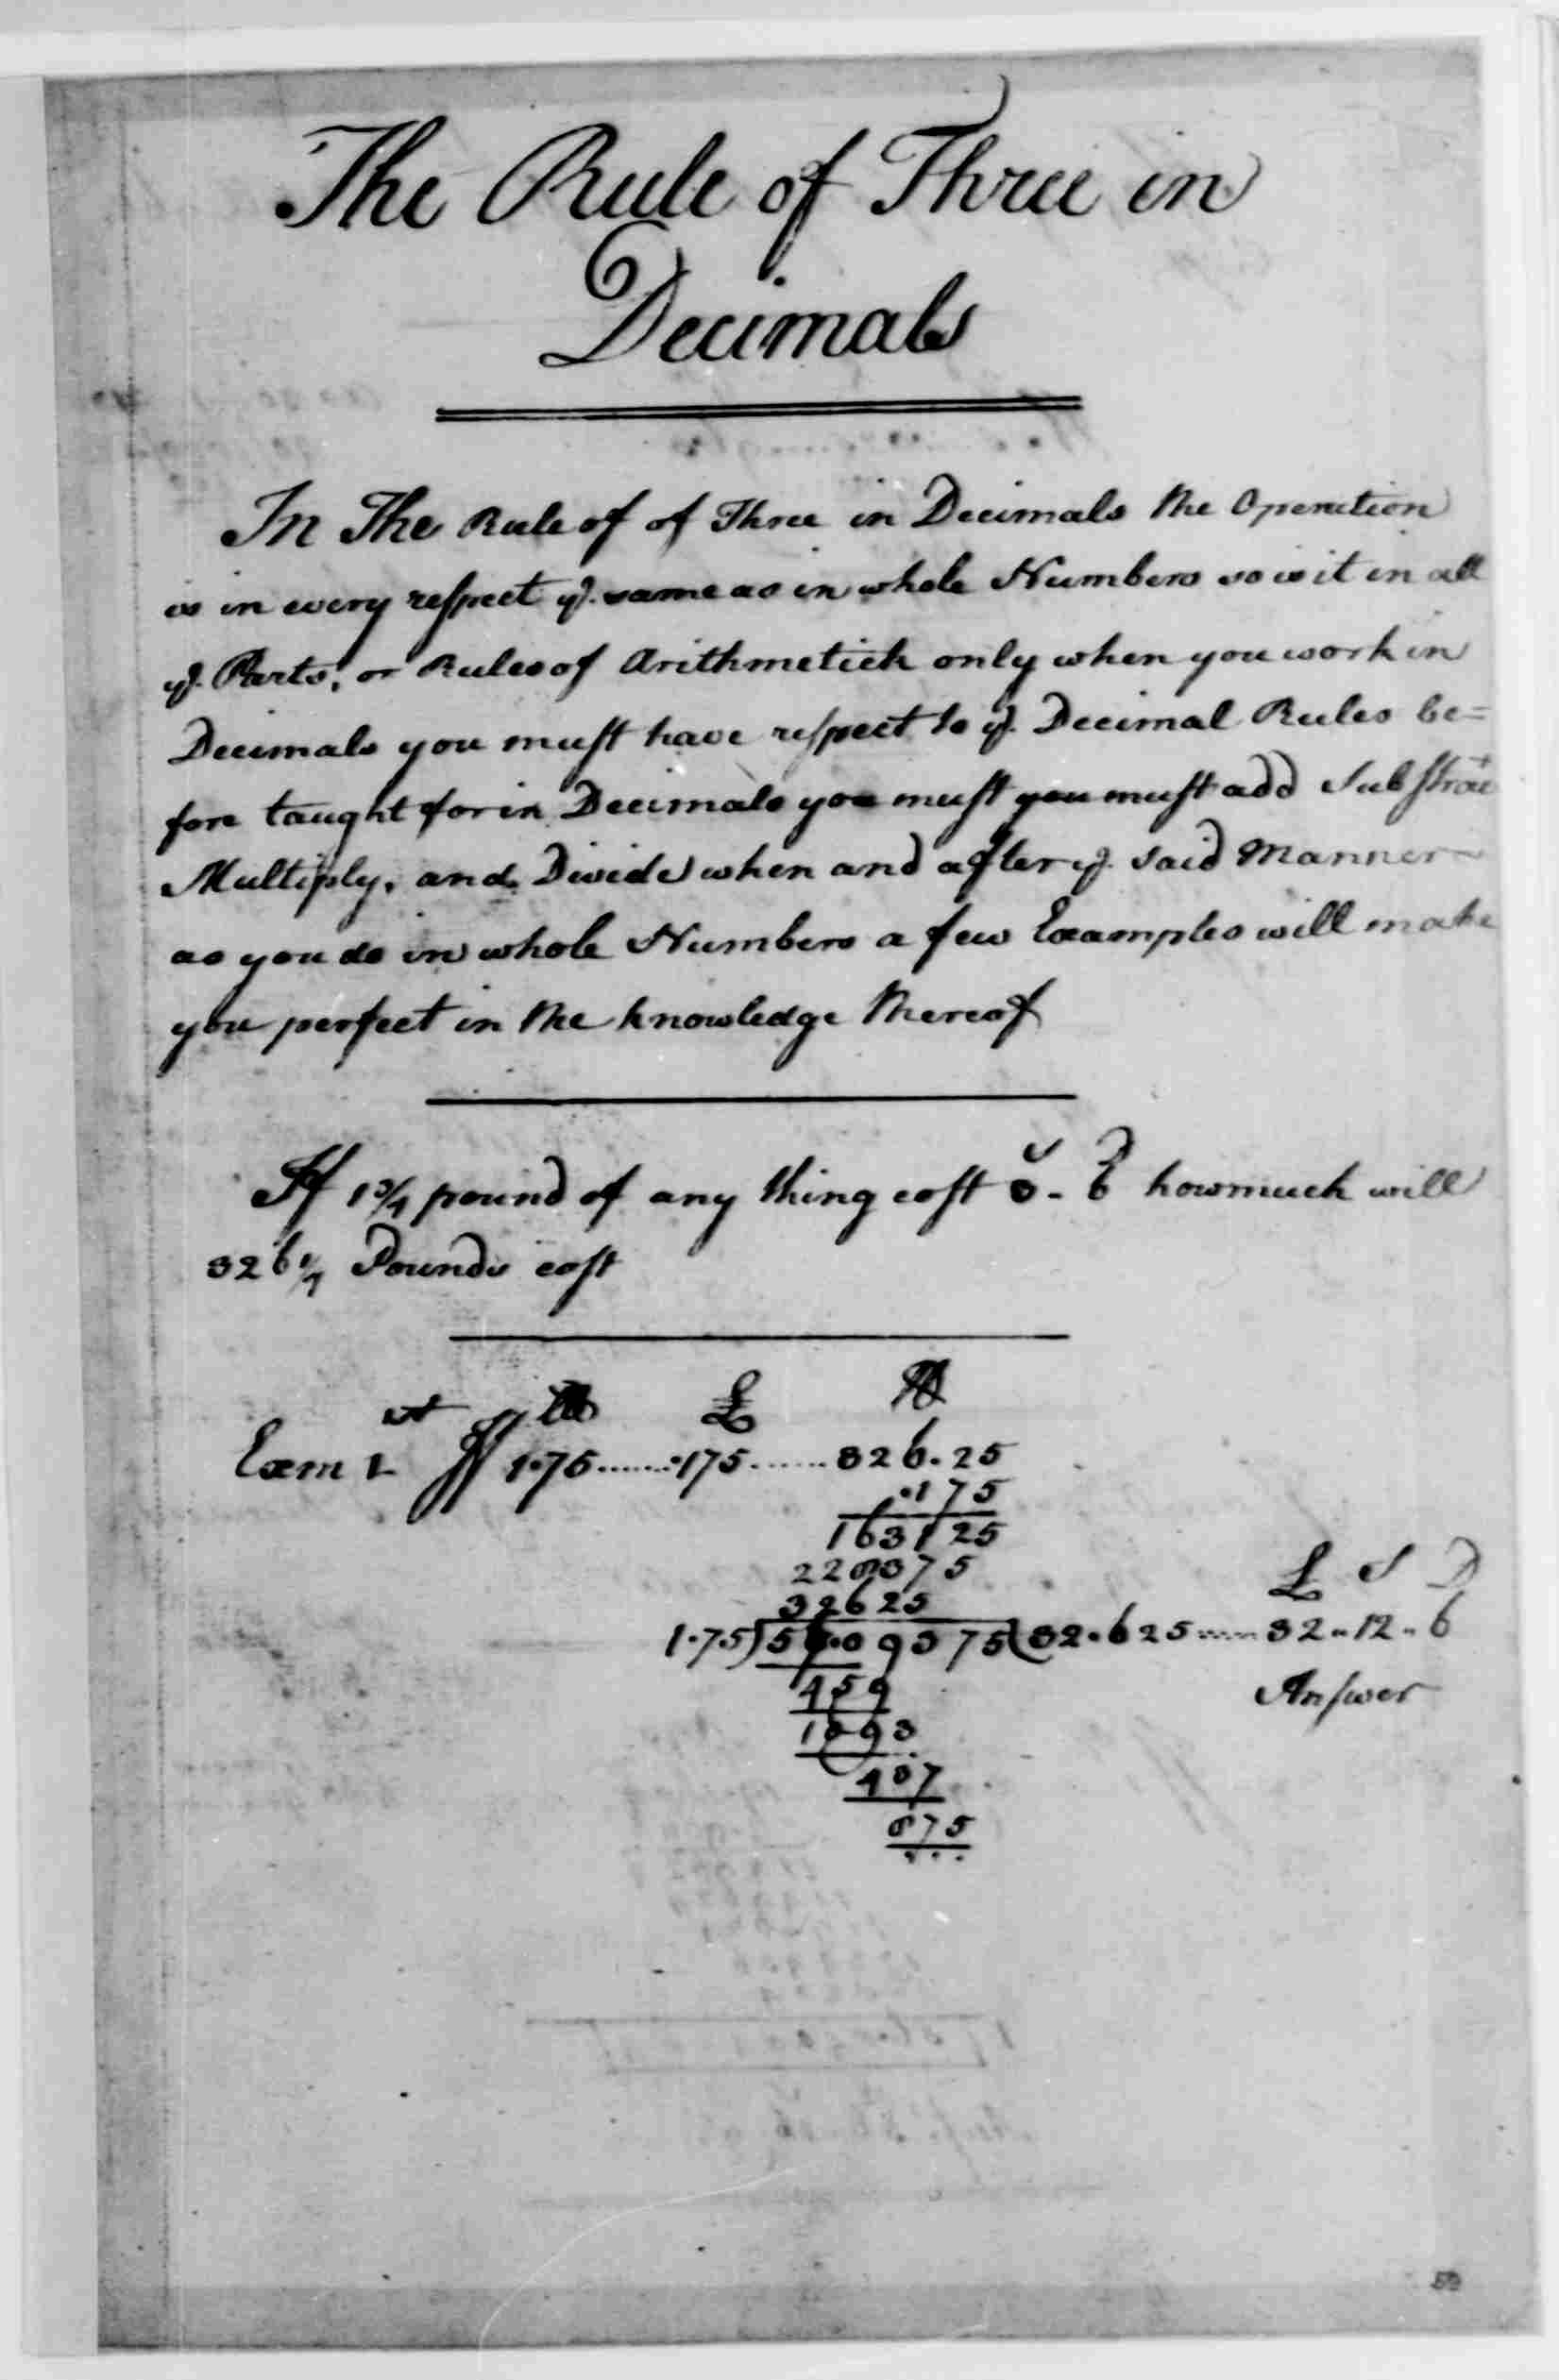 The Rule of Three in
Decimals
In The Rule of of Three in Decimals the Operation
is in every respect ye. same as in whole Numbers so is it in all
ye. Parts, or Rules of Arithmetick only when you work in
Decimals you must have respect to ye. Decimal Rules be=
fore taught for in Decimals you must you must add Substract
Multiply, and Divide when and after ye. said Manner
as you do in whole Numbers a few Examples will make
you perfect in the knowledge thereof
S D
If 1 3/4 pound of any thing cost 3 - 6 how much will
326 1/4 Pounds cost
lb £ lb
Exam 1st If 1.75.......175......326.25
.175
163125
228375
32625
£ S D
1.75)57.09375(32.625......32..12..6
459
1093
437
875
...
Answer
52